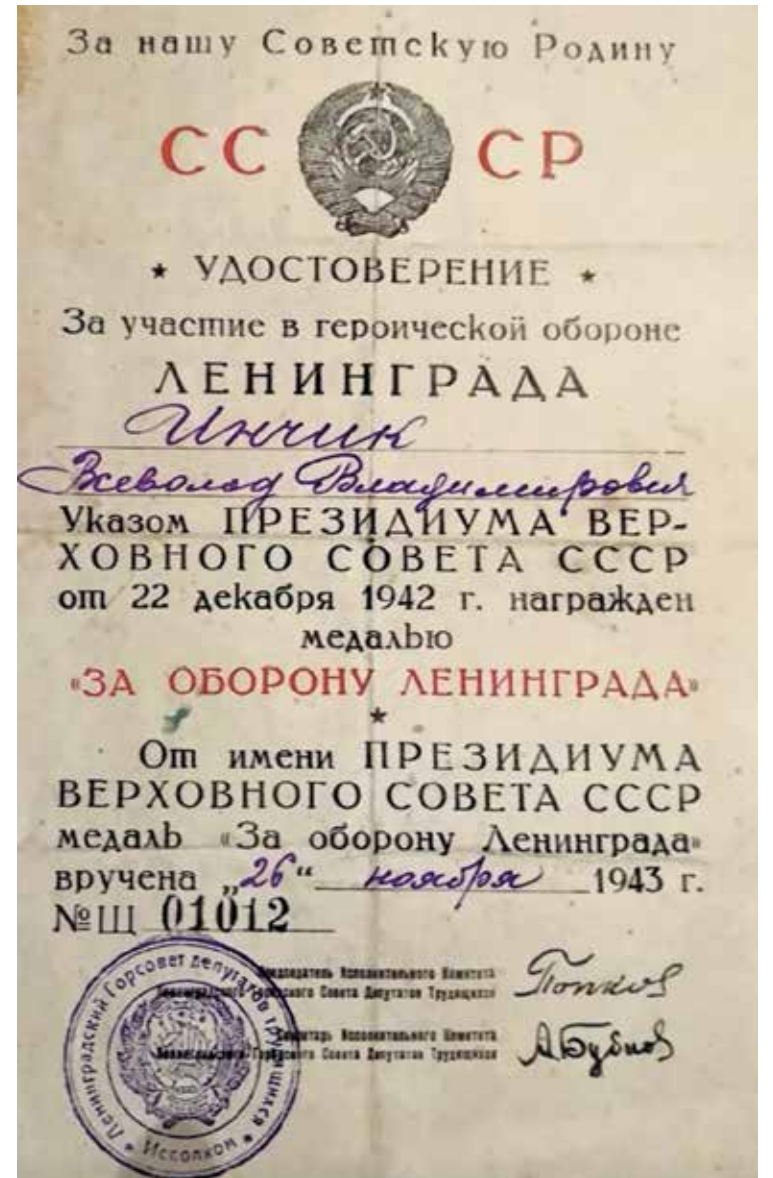 За нашу Советскую Родину
СС СР
★ УДОСТОВЕРЕНИЕ ★
За участие в героической обороне
ЛЕНИНГРАДА
Инчик
Всеволод Владимирович
Указом ПРЕЗИДИУМА ВЕР-
ХОВНОГО СОВЕТА СССР
от 22 декабря 1942 г. награжден
медалью
«ЗА ОБОРОНУ ЛЕНИНГРАДА»
★
От имени ПРЕЗИДИУМА
ВЕРХОВНОГО СОВЕТА СССР
медаль «За оборону Ленинграда»
вручена „26“ ноября 1943 г.
№Щ 01012
Председатель Исполнительного Комитета
Ленинградского Городского Совета Депутатов Трудящихся
Попков
Секретарь Исполнительного Комитета
Ленинградского Городского Совета Депутатов Трудящихся
А Бубнов
Ленинградский Горсовет депутатов трудящихся
★ Исполком ★